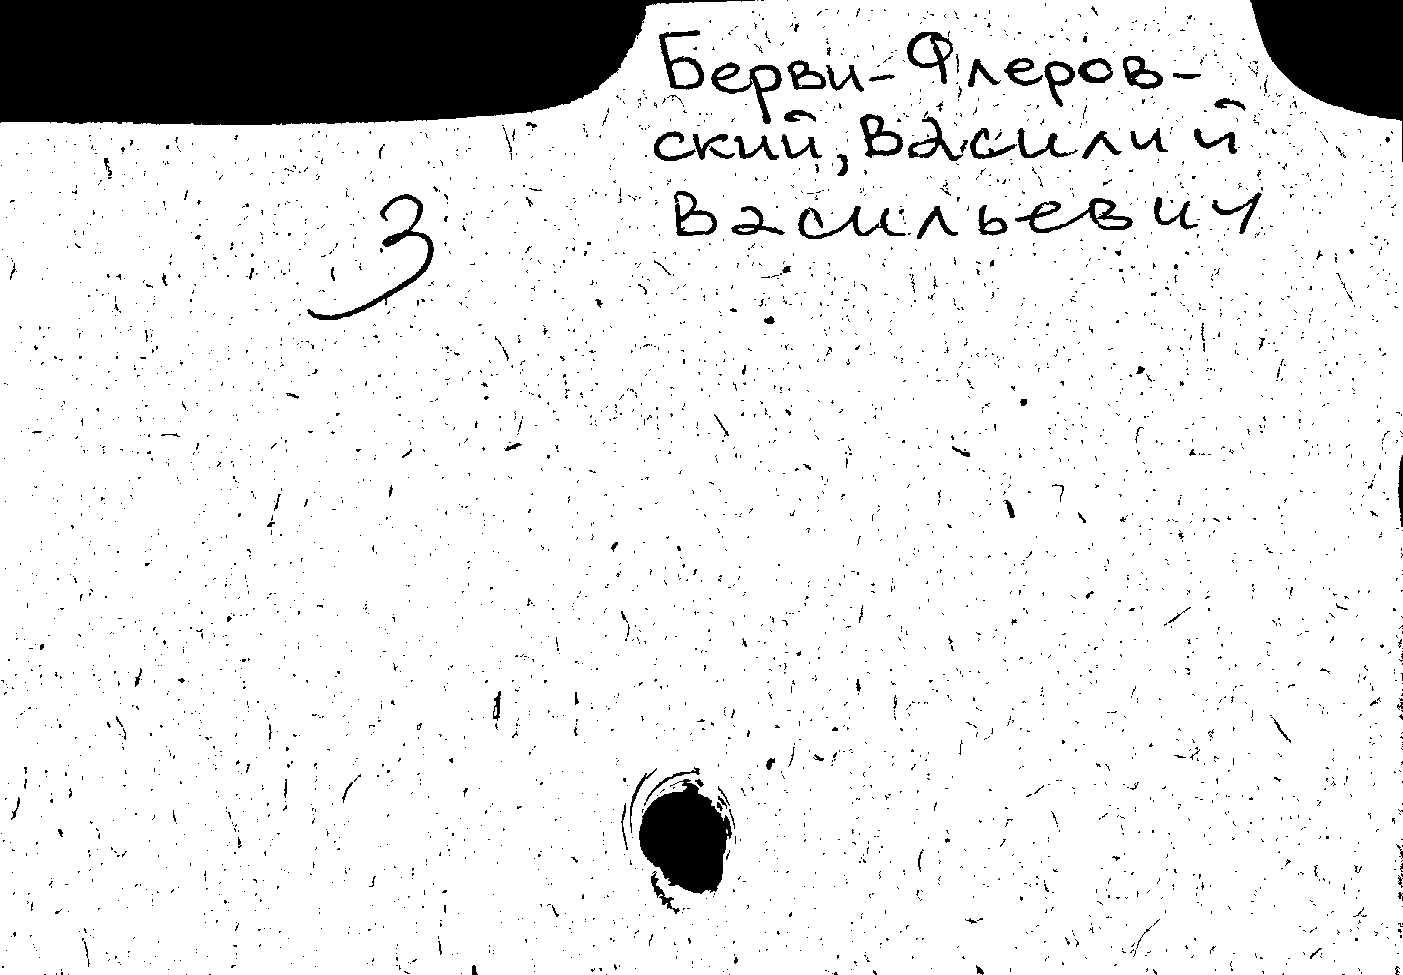 Берви-Флеров-
ский, Василий
Васильевич
3